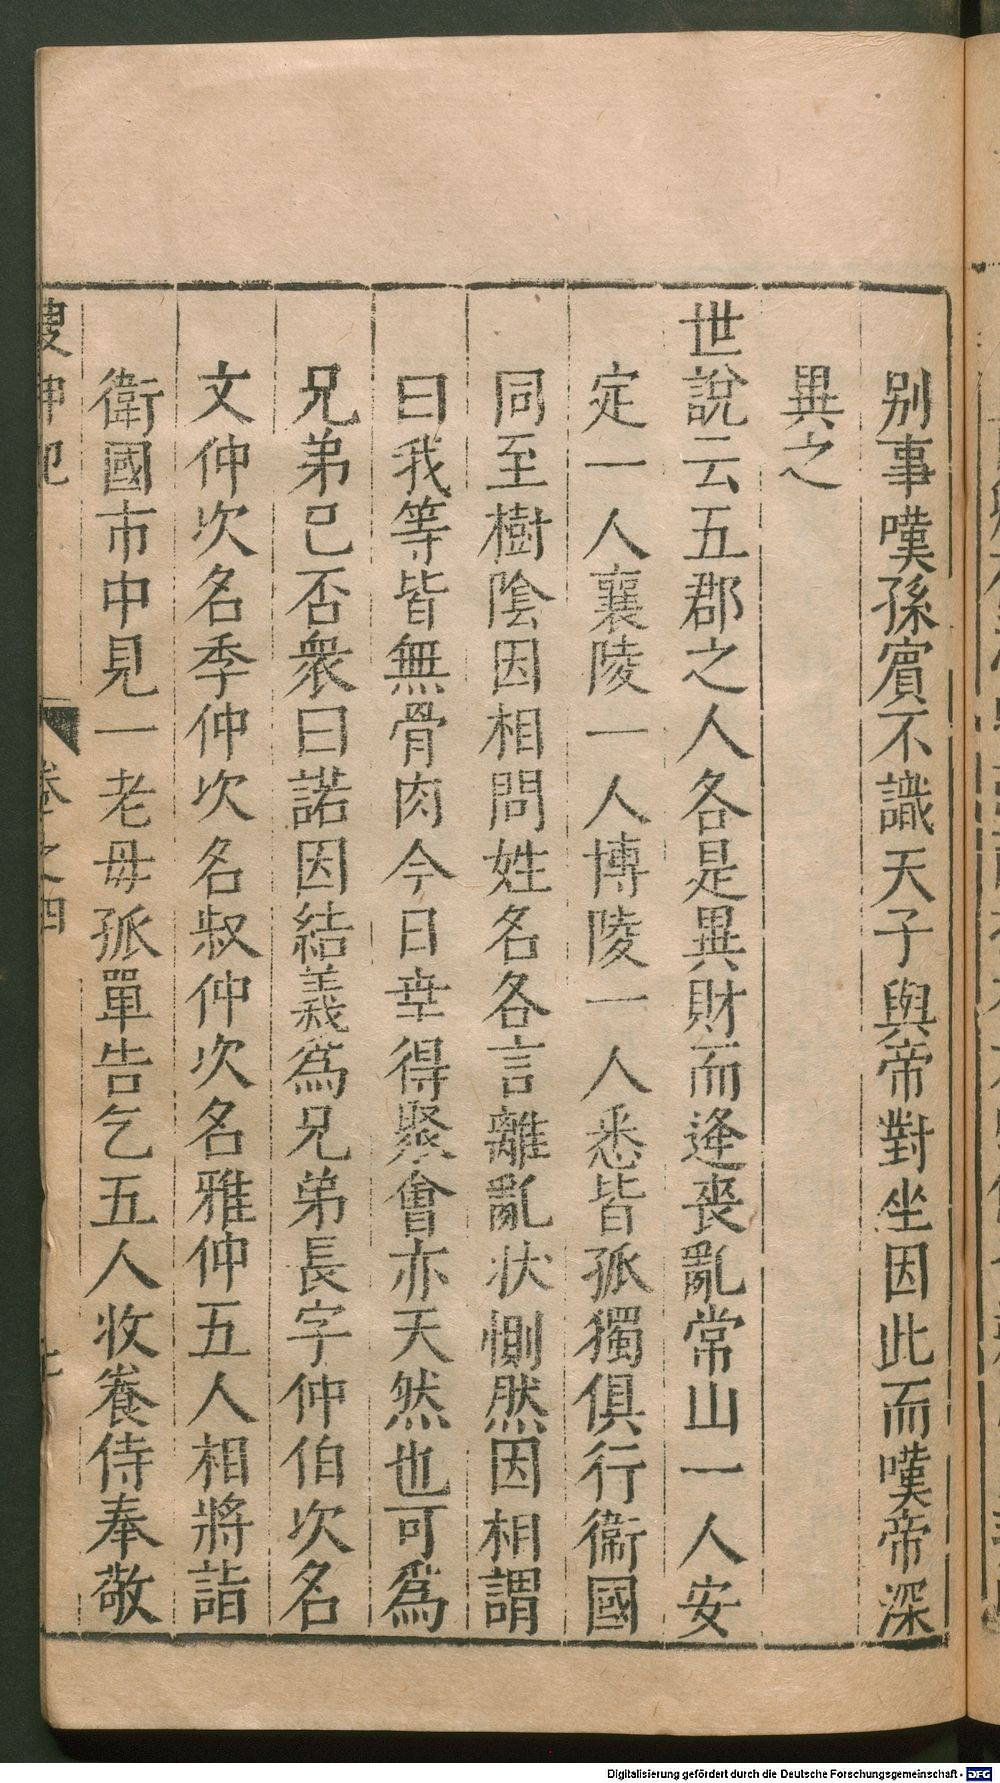 别事嘆孫賔不識天子與帝對坐因此而嘆帝深
異之
世說云五郡之人各是異財而逢喪亂常山一人安
定一人襄陵一人博陵一人悉皆孤獨俱行衞國
同至樹陰因相問姓名各言離亂狀惻然因相謂
曰我等皆無骨肉今日幸得聚會亦天然也可為
兄弟已否衆曰諾因結義為兄弟長字仲伯次名
文仲次名季仲次名叔仲次名雅仲五人相將詣
衛國市中見一老母孤單告乞五人收養侍奉敬
搜神記 卷之四
Digitalisierung gefördert durch die Deutsche Forschungsgemeinschaft - DFG